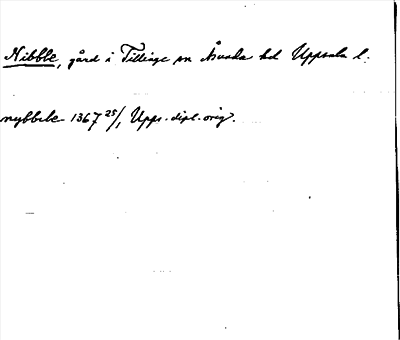 Nibble, gård i Tillinge sn Åsunda hd Uppsala l.
nybbele 1367 25/1 Upps. dipl. orig.